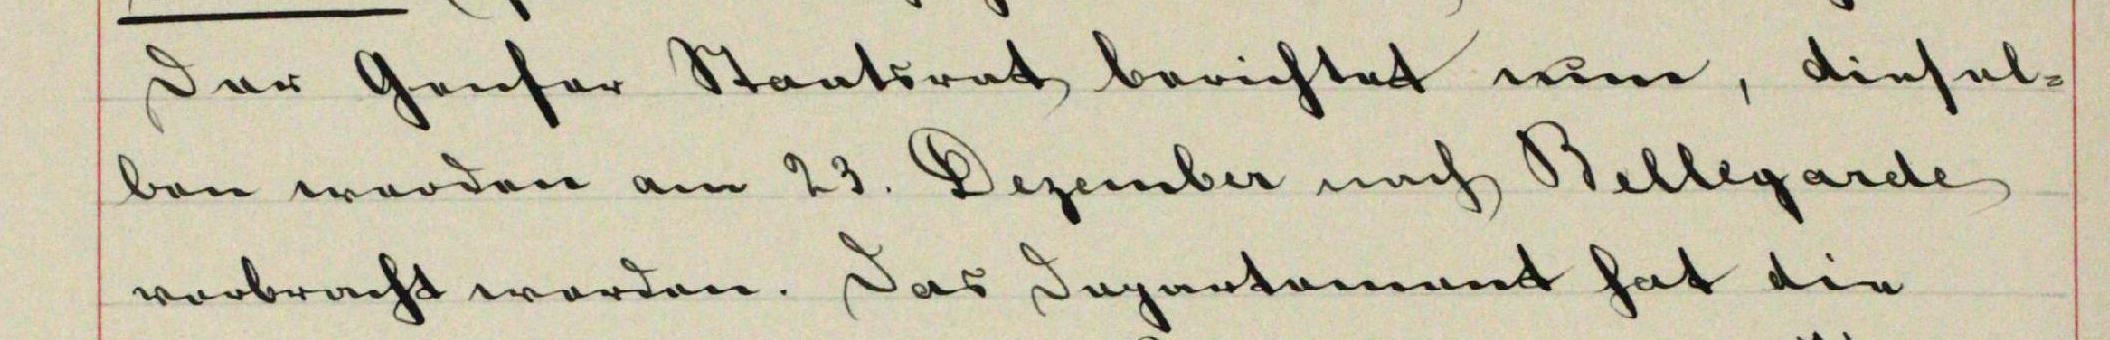 Der Genfer Staatsrat berichtet nun, diesel-
ben werden am 23. Dezember nach Bellegarde
verbracht werden. Das Departement hat die